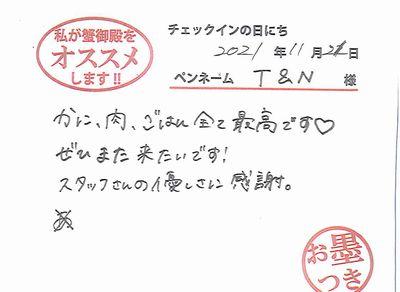 私が蟹御殿を
オススメ
します!!
チェックインの日にち
2021年11月2日
ペンネーム T&N 様
かに、肉、ごはん全て最高です♡
ぜひまた来たいです!
スタッフさんの優しさに感謝。
お墨
つき